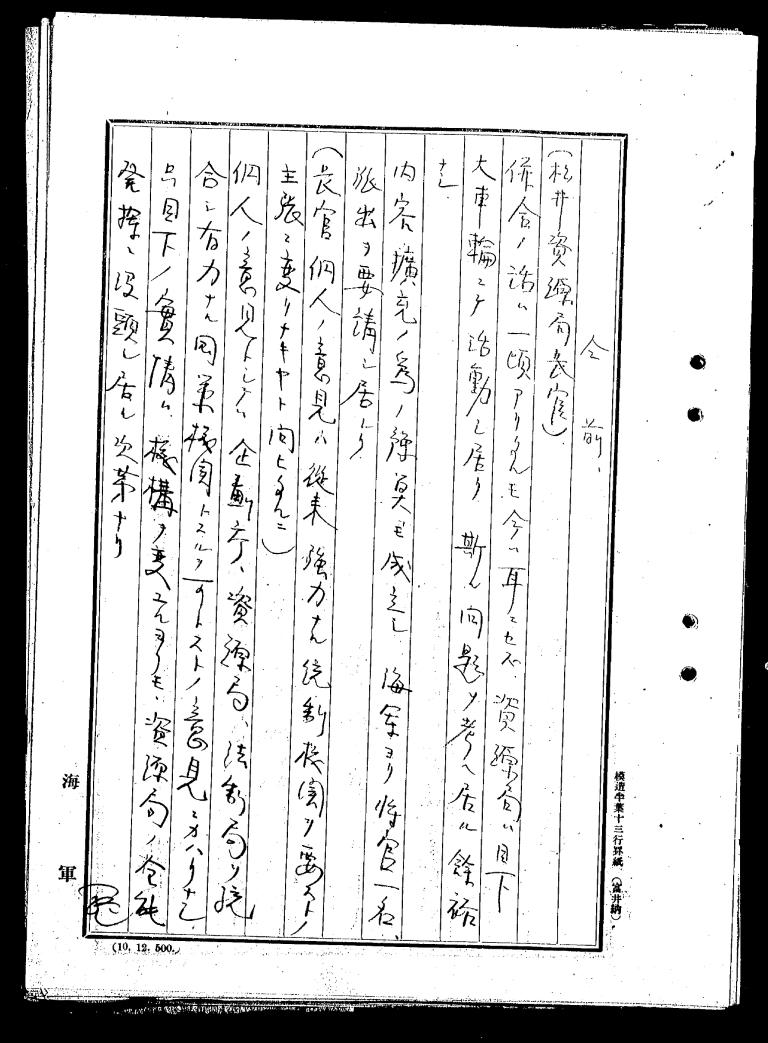 仝前、
(松井資源局長官)
併合ノ話ハ一頃アリタルモ今ハ耳ニセズ、資源局ハ目下
大車輪ニテ活動シ居リ 斯ル問題ヲ考ヘ居ル餘裕
ナシ
内容擴充ノ為ノ豫算モ成立シ 海軍ヨリ将官一名、
派出ヲ要請シ居レリ
(長官個人ノ意見ハ從来強力ナル統制機関ヲ要ストノ
主張ニ変リナキヤト問ヒタルニ)
個人ノ意見トシテハ企劃庁、資源局、法制局ヲ統
合シ有力ナル国策機関トスルヲ可トストノ意見ニカハリナシ
只目下ノ實情ハ、機構ヲ変エルヨリモ、資源局ノ全能
発揮ニ没頭シ居ル次第ナリ
模造半葉十三行罫紙 (富井納)
海軍
(10. 12. 500.)